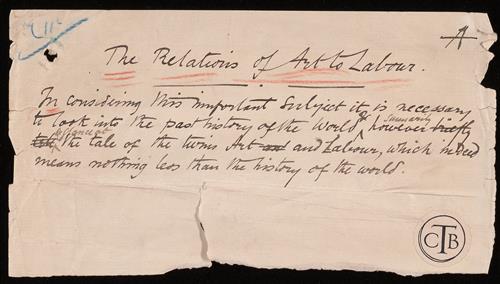 A
The Relations of Art to Labour.
In considering this important subject it is necessary
to look into the past history of the World, & however summarily briefly
to glance at the tale of the twins Art and and Labour, which indeed
means nothing less than the history of the world.
CTB